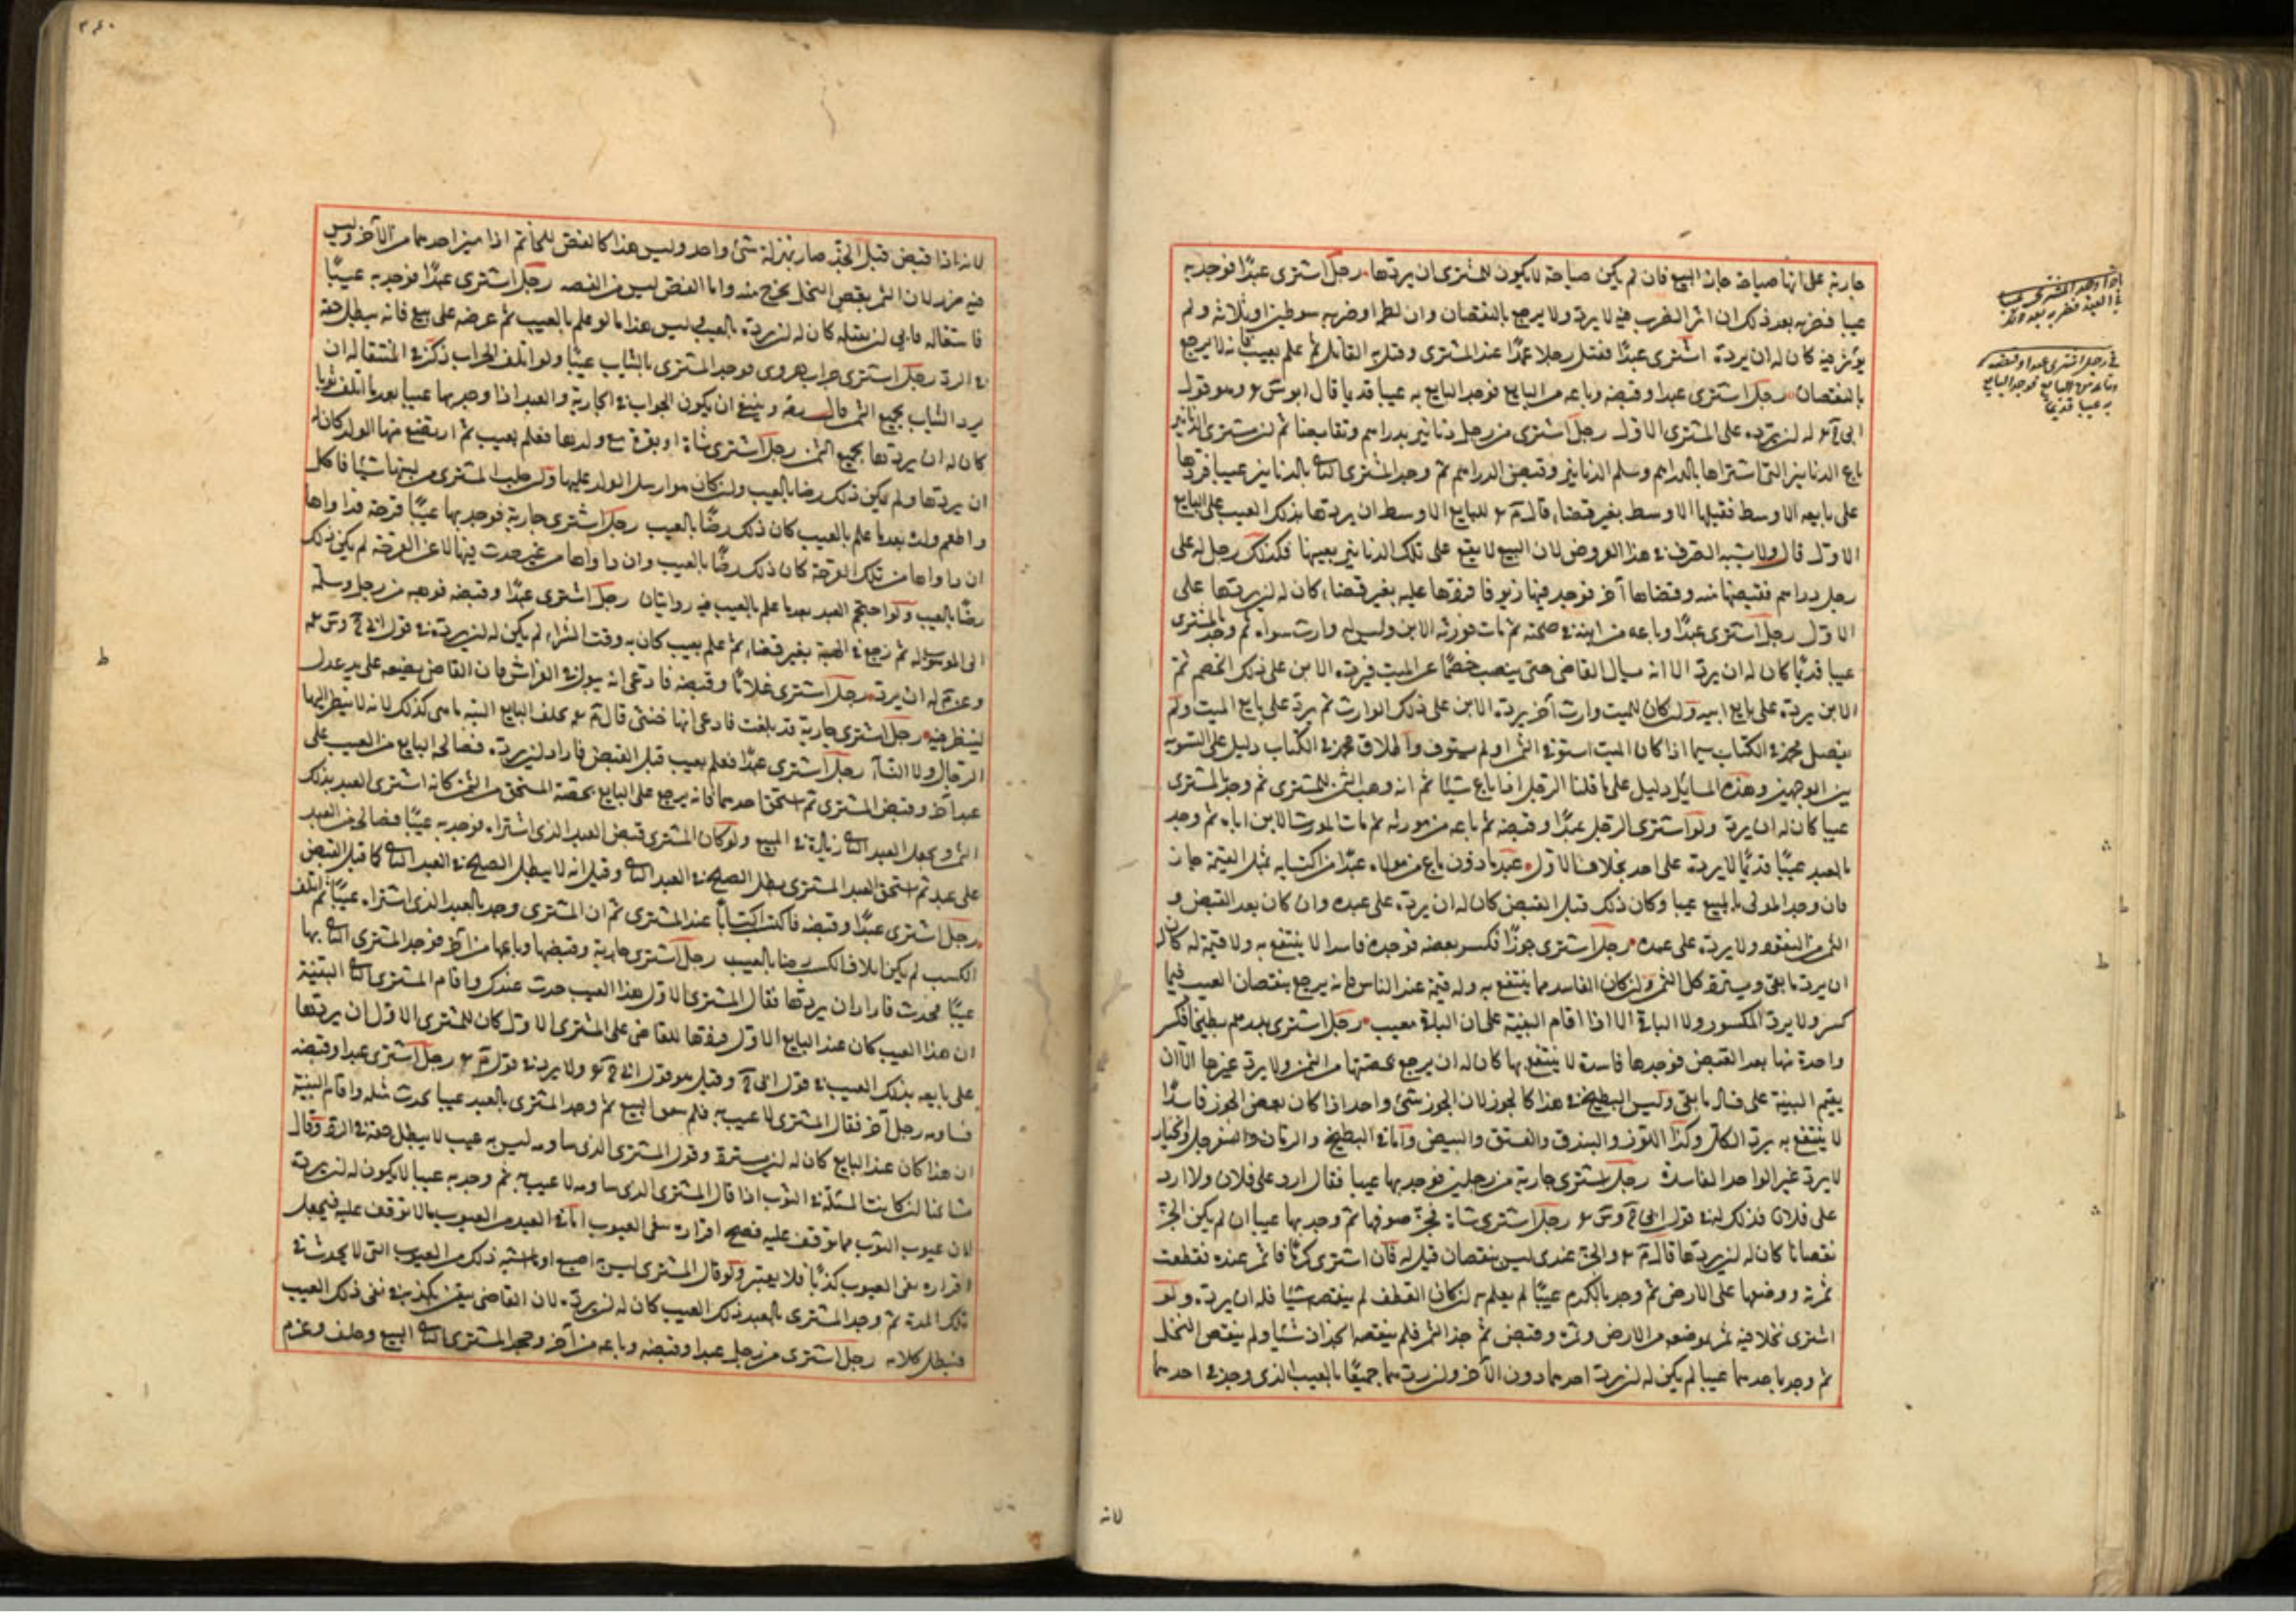 جارية على انها صباحة جاز البيع فان لم يكن صباحة لا يكون للمشترى ان يردها رجل اشترى عبدًا فوجد به
عيبا فضربه بعد ذلك ان اثر الضرب فيه لا يرد ولا يرجع بالنقصان وان لطم او ضربه سوطين او ثلاثه ولم
يوثر فيه كان له ان يرده اشترى عبدًا فقتل رجلا عمدًا عند المشترى وقتل به القاتل ثم علم بعيب فانه لا يرجع
بالنقصان رجل اشترى عبدا وقبضه وباعه من البايع فوجد البايع به عيبا قديما قال ابو وهو قول
له ان يرده على المشترى الاول رجل اشترى من رجل دنانير بدراهم وتقابضا ثم ان مشترى الدنانير
باع الدنانير التى اشتراها بالدراهم وسلم الدنانير وقبض الدراهم ثم وجد المشترى بالدنانير عيبا فردها
على بايعه الاوسط فقبلها الاوسط بغير قضاء قال للبايع الاوسط ان يردها بذلك العيب على البايع
الاول قال ولا يشبه الصرف هذا العروض لان البيع لا يقع على تلك الدنانير بعينها فكذلك رجل له على
رجل دراهم فقبضها منه وقضاها آخر فوجد فيها زيوفا فردها عليه بغير قضاء كان له ان يردها على
الاول رجل اشترى عبدًا وباعه من ابنه فى صحته ثم مات فورثه الابن وليس له وارث سواه ثم وجد المشترى
عيبا قديمًا كان له ان يرد الا انه يسال القاضى حتى ينصب خصمًا عن الميت فيرده الابن على ذلك الخصم ثم
الابن يرده على بايع ابيه ولو كان للميت وارث آخر يرده الابن على ذلك الوارث ثم يرد على بايع الميت ولم
يفصل محمد فى الكتاب بينما اذا كان الميت استوفى الثمن او لم يستوف واطلاق محمد فى الكتاب دليل على التسوية
بين الوجهين وهذه المسايل دليل على ما قلنا الرجل اذا باع شيئا ثم انه وهب الثمن للمشترى ثم وجد المشترى
عيبا كان له ان يرد ولو اشترى الرجل عبدًا وقبضه ثم باعه من مورثه ثم مات المورث الابن اباه ثم وجد
بالعبد عيبًا قديمًا لا يرده على احد بخلاف الاول عبد ماذون باع من مولاه عبدًا من اكتسابه بمثل القيمة جاز
فان وجد المولى بالمبيع عيبا وكان ذلك قبل القبض كان له ان يرده على عبده وان كان بعد القبض و
الثمن من النقود ولا يرده على عبده رجل اشترى جوزًا فكسر بعضه فوجده فاسدا لا ينتفع به ولا قيمة له كان له
ان يرد ما بقى ويسترد كل الثمن وان كان الفاسد مما ينتفع به وله قيمة عند الناس فانه يرجع بنقصان العيب فيما
كسر ولا يرد المكسور ولا الباقى الا اذا اقام البينة على ان الباقى معيب رجل اشترى بدرهم بطيخا فكسر
واحدة منها بعد القبض فوجدها فاسدة لا ينتفع بها كان له ان يرجع بحصتها من الثمن ولا يرد غيرها الا ان
يقيم البينة على فساد ما بقى وليس البطيخ فى هذا كالجوز لان الجوز شئ واحد اذا كان بعض الجوز فاسدًا
لا ينتفع به يرد الكل وكذا اللوز والبندق والفستق والبيض واما فى البطيخ والرمان والسفرجل والخيار
لا يرد غير الواحد الفاسدة رجل اشترى جارية من رجلين فوجد بها عيبا فقال ارد على فلان ولا ارد
على فلان فذلك له فى قول رجل اشترى شاة فجز صوفها ثم وجد بها عيبا ان لم يكن الجز
نقصانا كان له ان يردها قال والجز عندى ليس بنقصان قيل له فان اشترى كرمًا فاثمر عنده فقطعت
ثمرته ووضعها على الارض ثم وجد بالكرم عيبًا لم يعلم به ان كان القطف لم ينقصه شيئا فله ان يرده ولو
اشترى نخلا فيه ثمر بموضعه من الارض وثمره وقبض ثم جذ الثمر فلم ينقصه الجذاذ شيئا ولم ينقص النخل
ثم وجد باحدهما عيبا لم يكن له ان يرد احدهما دون الآخر وان يردهما جميعًا بالعيب الذى وجد فى احدهما
لانه
اذا وجد المشترى عيبا
فى العبد فضربه بعد ذلك
فى رجل اشترى عبدا وقبضه
وباعه من البايع فوجد البايع
به عيبا قديما
٣٤٠
لانه اذا قبض قبل الجذ صار بمنزلة شئ واحد وليس هذا كالفص للخاتم اذا ميز احدهما من الآخر وليس
فيه ضرر لان الثمر ينقص النخل يخرج منه واما الفص ليس من الفضه رجل اشترى عبدًا فوجد به عيبًا
فاستقاله فابى ان يقيله كان له ان يرده بالعيب ليس هذا ما لو علم بالعيب ثم عرضه على بيع فانه يبطل حقه
فى الرد رجل اشترى جراب هروى فوجد المشترى بالثياب عيبًا ولو اتلف الجراب ذكر فى المنتقى له ان
يرد الثياب بجميع الثمن قال وينبغى ان يكون الجواب فى الجارية والعبد اذا وجد بها عيبا بعد ما اتلف ثوبها
كان له ان يردها بجميع الثمن رجل اشترى شاة او بقرة مع ولدها فعلم بعيب ثم ارتضع منها الولد كان له
ان يردها ولم يكن ذلك رضا بالعيب وان كان هو ارسل الولد عليها ولو حلب المشترى من لبنها شيئا فاكل
او اطعم ولده بعد ما علم بالعيب كان ذلك رضًا بالعيب رجل اشترى جارية فوجد بها عيبًا قرحة فداواها
ان داواها من تلك القرحة كان ذلك رضًا بالعيب وان داواها من عيب حدث فيها لا عن القرحة لم يكن ذلك
رضًا بالعيب ولو احتجم العبد بعد ما علم بالعيب فيه روايتان رجل اشترى عبدًا وقبضه فوهبه من رجل وسلمه
الى الموهوب له ثم رجع فى الهبة بغير قضاء ثم علم بعيب كان به وقت الشراء لم يكن له ان يرده فى قول
وعند له ان يرده رجل اشترى غلامًا وقبضه فادعى انه يبول فى الفراش فان القاضى يضعه على يد عدل
لينظر فيه رجل اشترى جارية قد بلغت فادعى انها خنثى قال يحلف البايع البتة ما هى كذلك لانه لا ينظر اليها
الرجال ولا النساء رجل اشترى عبدًا فعلم بعيب قبل القبض فاراد ان يرده فصالحه البايع من العيب على
عبد آخر وقبض المشترى ثم استحق احدهما فانه يرجع على البايع بحصة المستحق من الثمن كانه اشترى العبد بذلك
الثمن ويجعل العبد زيادة فى المبيع ولو كان المشترى قبض العبد الذى اشتراه فوجد به عيبًا فصالح من العبد
على عبد ثم استحق العبد المشترى بطل الصلح فى العبد وقيل انه لا يبطل الصلح فى العبد كما قبل القبض
رجل اشترى عبدًا وقبضه فاكتسب اكتسابًا عند المشترى ثم ان المشترى وجد بالعبد الذى اشتراه عيبًا ثم اتلف
الكسب لم يكن اتلاف الكسب رضا بالعيب رجل اشترى جارية وقبضها وباعها من آخر فوجد المشترى بها
عيبًا يحدث فاراد ان يردها فقال المشترى الاول هذا العيب حدث عندك واقام المشترى البينة
ان هذا العيب كان عند البايع الاول فردها القاضى على المشترى الاول كان للمشترى الاول ان يردها
على بايعه بذلك العيب فى قول وقيل هو قول ولا يرد فى قول رجل اشترى عبدا وقبضه
فساومه رجل آخر فقال المشترى لا عيب به فلم البيع ثم وجد المشترى بالعبد عيبا يحدث مثله واقام البينة
ان هذا كان عند البايع كان له ان يسترد وقول المشترى الذى ساومه ليس به عيب لا يبطل حقه فى الرد وقال
مشايخنا ان كانت المسئلة فى الثوب اذا قال المشترى الذى ساومه لا عيب به ثم وجد به عيبا لا يكون له ان يرده
لان عيوب الثوب مما توقف عليه فصح اقراره بنفى العيوب اما فى العبد من العيوب مالا توقف عليه فيجعل
اقراره بنفى العيوب كذبًا فلا يعتبر ولو قال المشترى ليس به اصبع او ما اشبه ذلك من العيوب التى لا يحدث فى
تلك المدة ثم وجد المشترى بالعبد ذلك العيب كان له ان يرده لان القاضى تيقن بكذبه فى نفى ذلك العيب
فيبطل كلامه رجل اشترى من رجل عبدا وقبضه وباعه من آخر وجحد المشترى البيع وحلف وعزم